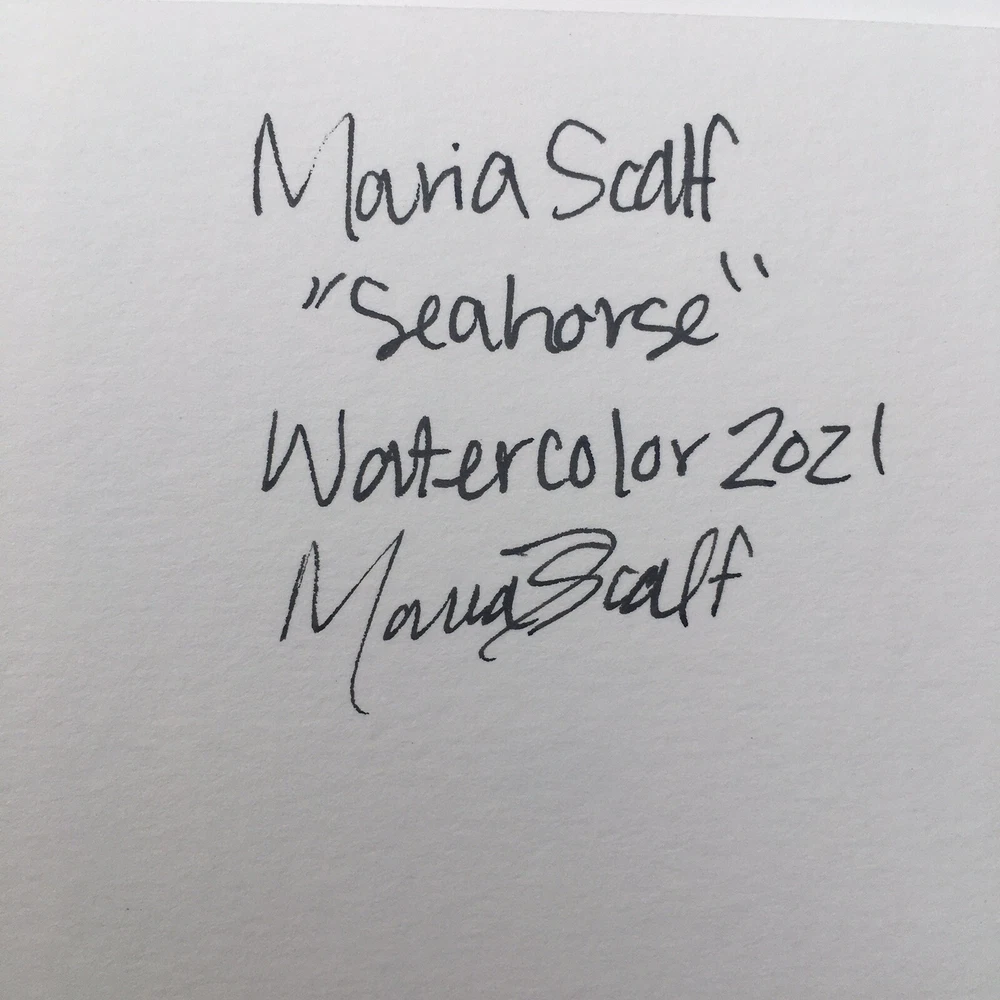 Maria Scalf
"Seahorse"
Watercolor 2021
Maria Scalf